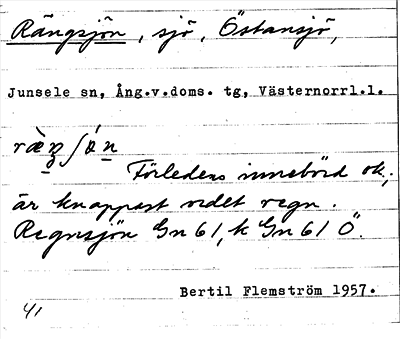 Rängsjön, sjö, Östansjö,
Junsele sn, Ång.v.doms. tg, Västernorrl.l.
Förledens innebörd ok.,
är knappast vidlt regn.
Regnsjön Gn 61, k Gn 61 Ö.
Bertil Flemström 1957.
41